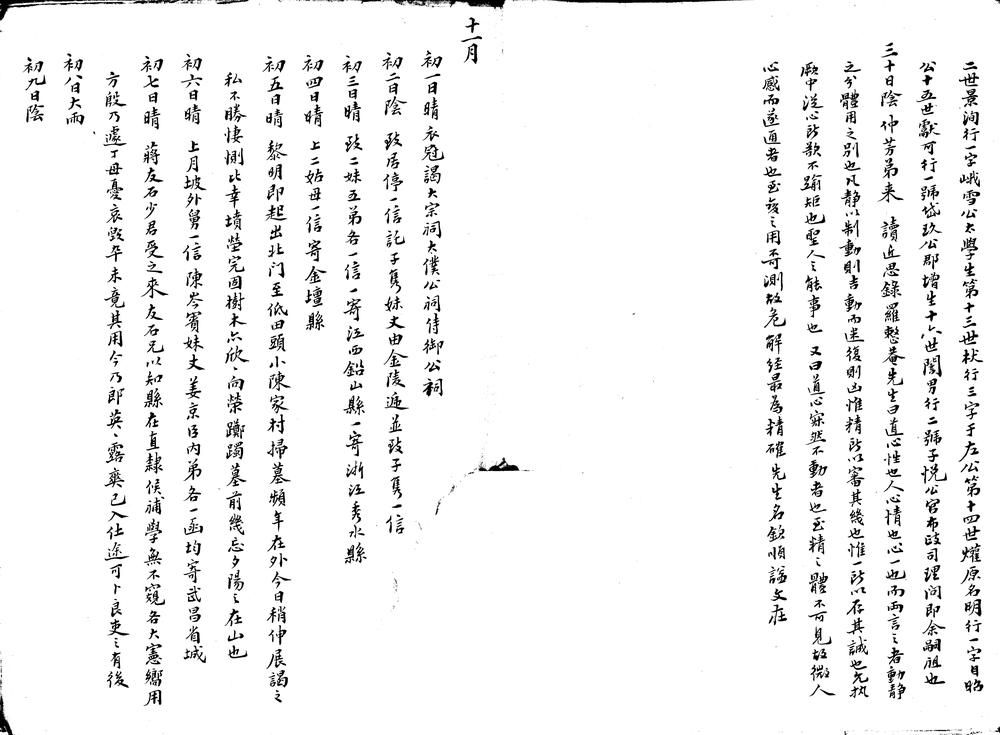 二世景洵行一字峨雪公太學生第十三世杕行三字于左公第十四世爟原名明行一字目昭
公十五世獻可行一號岱玖公郡增生十六世閶胃行二號子悅公官布政司理問即余嗣祖也
三十日陰 仲芳弟来 讀近思錄羅整菴先生曰道心性也人心情也心一也而兩言之者動静
之分體用之別也凡静以制動則吉動而迷復則凶惟精所以審其幾也惟一所以存其誠也允执
厥中從心所欲不踰矩也聖人之能事也 又曰道心寂然不動者也至精之體不可見故微人
心感而遂通者也至變之用不可測故危 解經最為精確 先生名欽順謚文莊
十一月
初一日晴 衣冠謁大宗祠太僕公祠侍御公祠
初二日陰 致居停一信託子雋妹丈由金陵遞並致子雋一信
初三日晴 致二妹五弟各一信一寄江西鉛山縣一寄浙江秀水縣
初四日晴 上二姑母一信寄金壇縣
初五日晴 黎明即起出北门至低田頭小陳家村掃墓頻年在外今日稍伸展謁之
私不勝悽惻比幸墳塋完固樹木亦欣欣向榮躑躅墓前幾忘夕陽之在山也
初六日晴 上月坡外舅一信陳岑賓妹丈姜京臣内弟各一函均寄武昌省城
初七日晴 蔣友石少君受之來友石兄以知縣在直隸候補學無不窺各大憲嚮用
方殷乃遽丁母憂哀毀卒未竟其用今乃郎英英露爽已入仕途可卜良吏之有後
初八日大雨
初九日陰